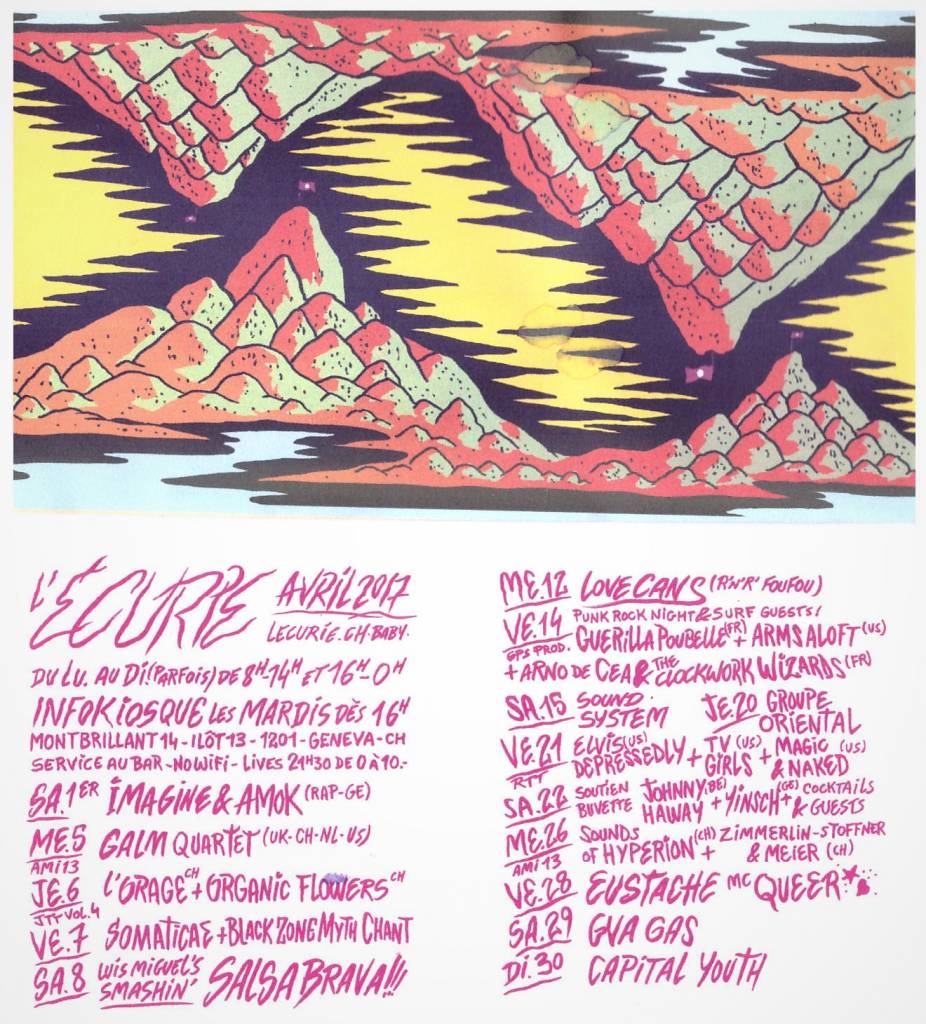 L'ÉCURIE AVRIL 2017
LECURIE.CH.BABY.
DU LU. AU DI. (PARFOIS) DE 8H-14H ET 16H-0H
INFOKIOSQUE LES MARDIS DÈS 16H
MONTBRILLANT 14 - ILÔT 13 - 1201 - GENEVA - CH
SERVICE AU BAR - NO WIFI - LIVES 21H30 DE 0 À 10.-
SA.1ER IMAGINE & AMOK (RAP-GE)
ME.5 GALM QUARTET (UK-CH-NL-US)
AMI 13
JE.6 L'ORAGE CH + ORGANIC FLOWERS CH
JTT VOL.4
VE.7 SOMATICAE + BLACK ZONE MYTH CHANT
SA.8 LUIS MIGUEL'S SMASHIN' SALSA BRAVA!!!
ME.12 LOVE CANS (R'N'R' FOUFOU)
VE.14 PUNK ROCK NIGHT & SURF GUESTS!
GPS PROD. GUERILLA POUBELLE (FR) + ARMS ALOFT (US)
+ ARNO DE CEA & THE CLOCKWORK WIZARDS (FR)
SA.15 SOUND SYSTEM JE.20 GROUPE ORIENTAL
VE.21 ELVIS (US) DEPRESSEDLY + TV (US) GIRLS + MAGIC (US) & NAKED
RTT
SA.22 SOUTIEN BUVETTE JOHNNY (BE) HAWAY + YINSCH (GE) + COCKTAILS & GUESTS
ME.26 SOUNDS OF HYPERION (CH) + ZIMMERLIN-STOFFNER & MEIER (CH)
AMI 13
VE.28 EUSTACHE MC QUEER
SA.29 GVA GAS
DI.30 CAPITAL YOUTH